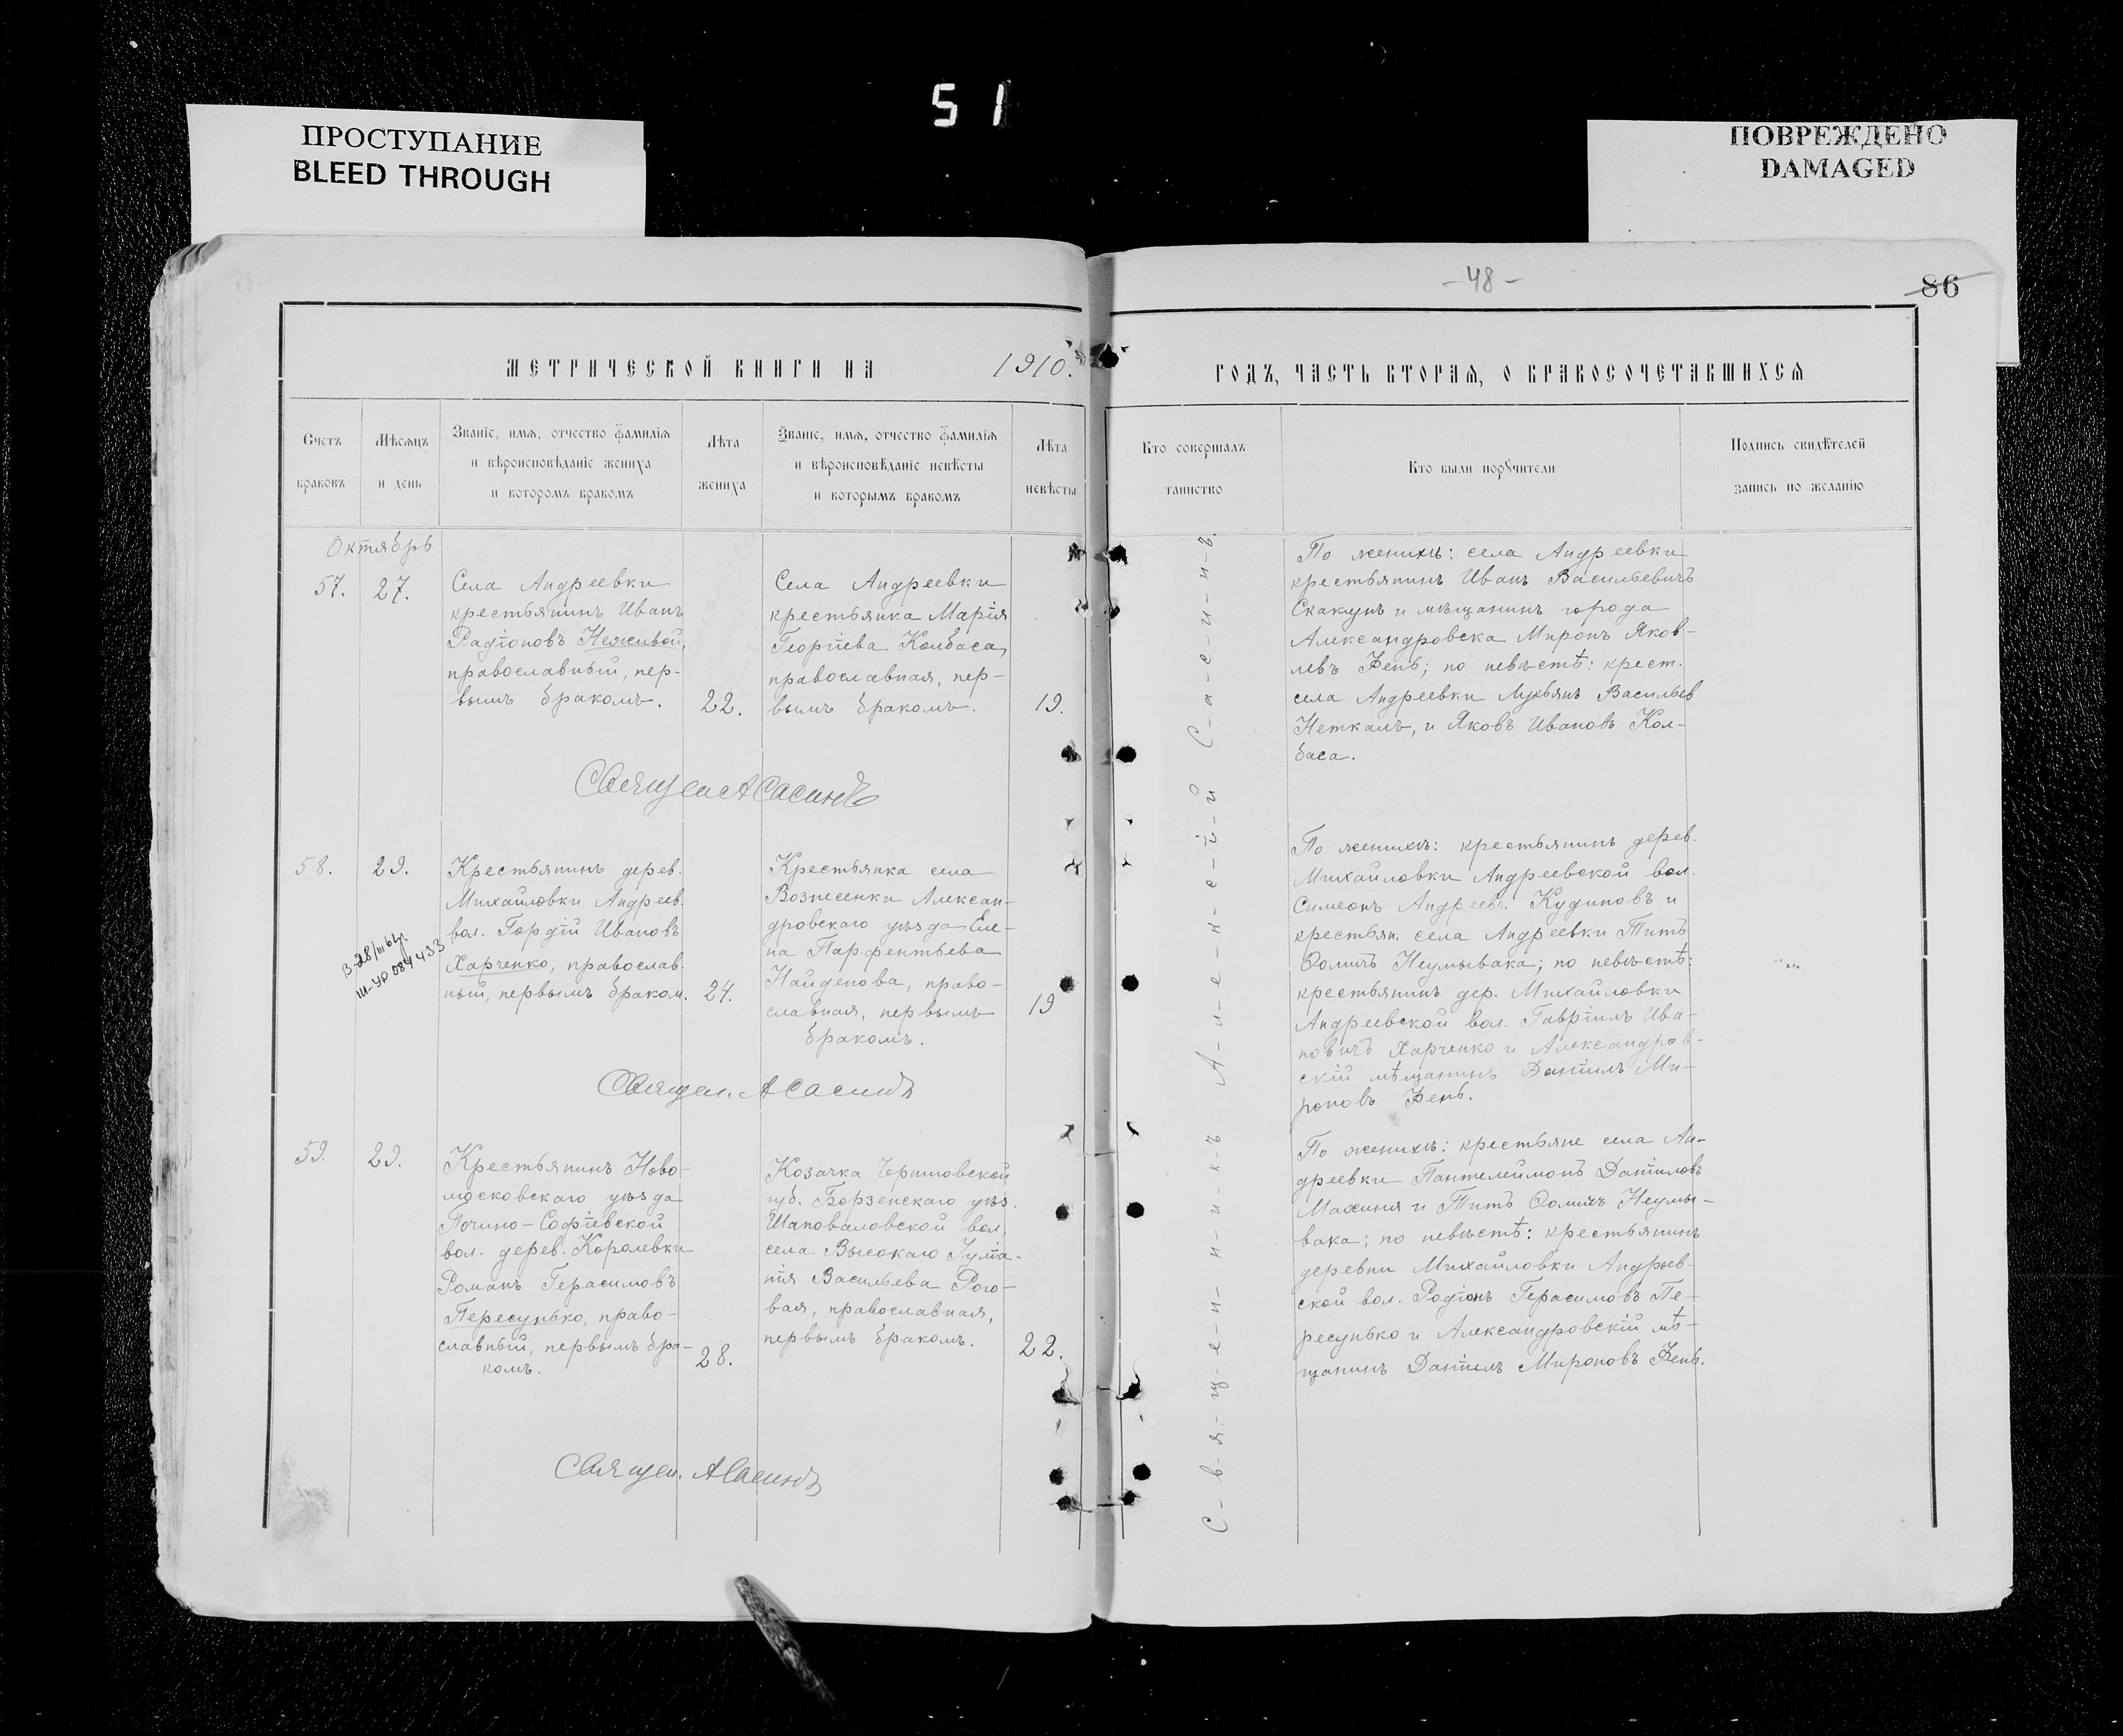 51
ПРОСТУПАНИЕ
BLEED THROUGH
ПОВРЕЖДЕНО
DAMAGED
-48-
86
МЕТРИЧЕСКОЙ КНИГИ НА 1910.
ГОДЪ, ЧАСТЬ ВТОРАЯ, О БРАКОСОЧЕТАВШИХСЯ
Счетъ
браковъ
Мѣсяцъ
и день
Званіе, имя, отчество фамилія
и вѣроисповѣданіе жениха
и которомъ бракомъ
Лѣта
жениха
Званіе, имя, отчество фамилія
и вѣроисповѣданіе невѣсты
и которымъ бракомъ
Лѣта
невѣсты
Кто совершалъ
таинство
Кто были поручители
Подпись свидѣтелей
запись по желанію
Октябрь
57.
27.
Села Андреевки
крестьянинъ Иванъ
Радіоновъ Неживой,
православный, пер-
вымъ бракомъ.
22.
Села Андреевки
крестьянка Марія
Георгіева Колбаса,
православная, пер-
вымъ бракомъ.
19.
По женихѣ: села Андреевки
крестьянинъ Иванъ Васильевичъ
Скакунъ и мѣщанинъ города
Александровска Миронъ Яков-
левъ Фень; по невѣстѣ: крест.
села Андреевки Лукьянъ Васильев
Неткалъ, и Яковъ Ивановъ Кол-
баса.
Священ А Сасинъ
58.
29.
Крестьянинъ дерев.
Михайловки Андреев.
вол. Гордій Ивановъ
Харченко, православ.
ный, первымъ браком.
24.
Крестьянка села
Вознесенки Алексан-
дровскаго уѣзда Еле-
на Парфентьева
Найденова, право-
славная, первымъ
бракомъ.
19
По женихѣ: крестьянинъ дерев.
Михайловки Андреевской вол.
Симеонъ Андреев. Кудиновъ и
крестьян. села Андреевки Титъ
Ѳомичъ Неумывака; по невѣстѣ:
крестьянинъ дер. Михайловки
Андреевской вол. Гавріилъ Ива-
новичъ Харченко и Александров-
скій мѣщанинъ Даніилъ Ми-
роновъ Фень.
Священ. А Сасинъ
59.
29.
Крестьянинъ Ново-
московскаго уѣзда
Почино-Софіевской
вол. дерев. Королевки
Романъ Герасимовъ
Пересунько, право-
славный, первымъ бра-
комъ.
28.
Козачка Черниговской
губ. Борзенскаго уѣз.
Шаповаловской вол.
села Высокаго Іуліа-
нія Васильева Рого-
вая, православная,
первымъ бракомъ.
22.
По женихѣ: крестьяне села Ан-
дреевки Пантелеймонъ Даніиловъ
Махиня и Титъ Ѳомичъ Неумы-
вака; по невѣстѣ: крестьянинъ
деревни Михайловки Андреев-
ской вол. Родіонъ Герасимовъ Пе-
ресунько и Александровскій мѣ-
щанинъ Даніилъ Мироновъ Фень.
Священ. А Сасинъ
С-в-я-щ-е-н-н-и-к-ъ А-л-е-к-с-і-й С-а-с-и-н-ъ.